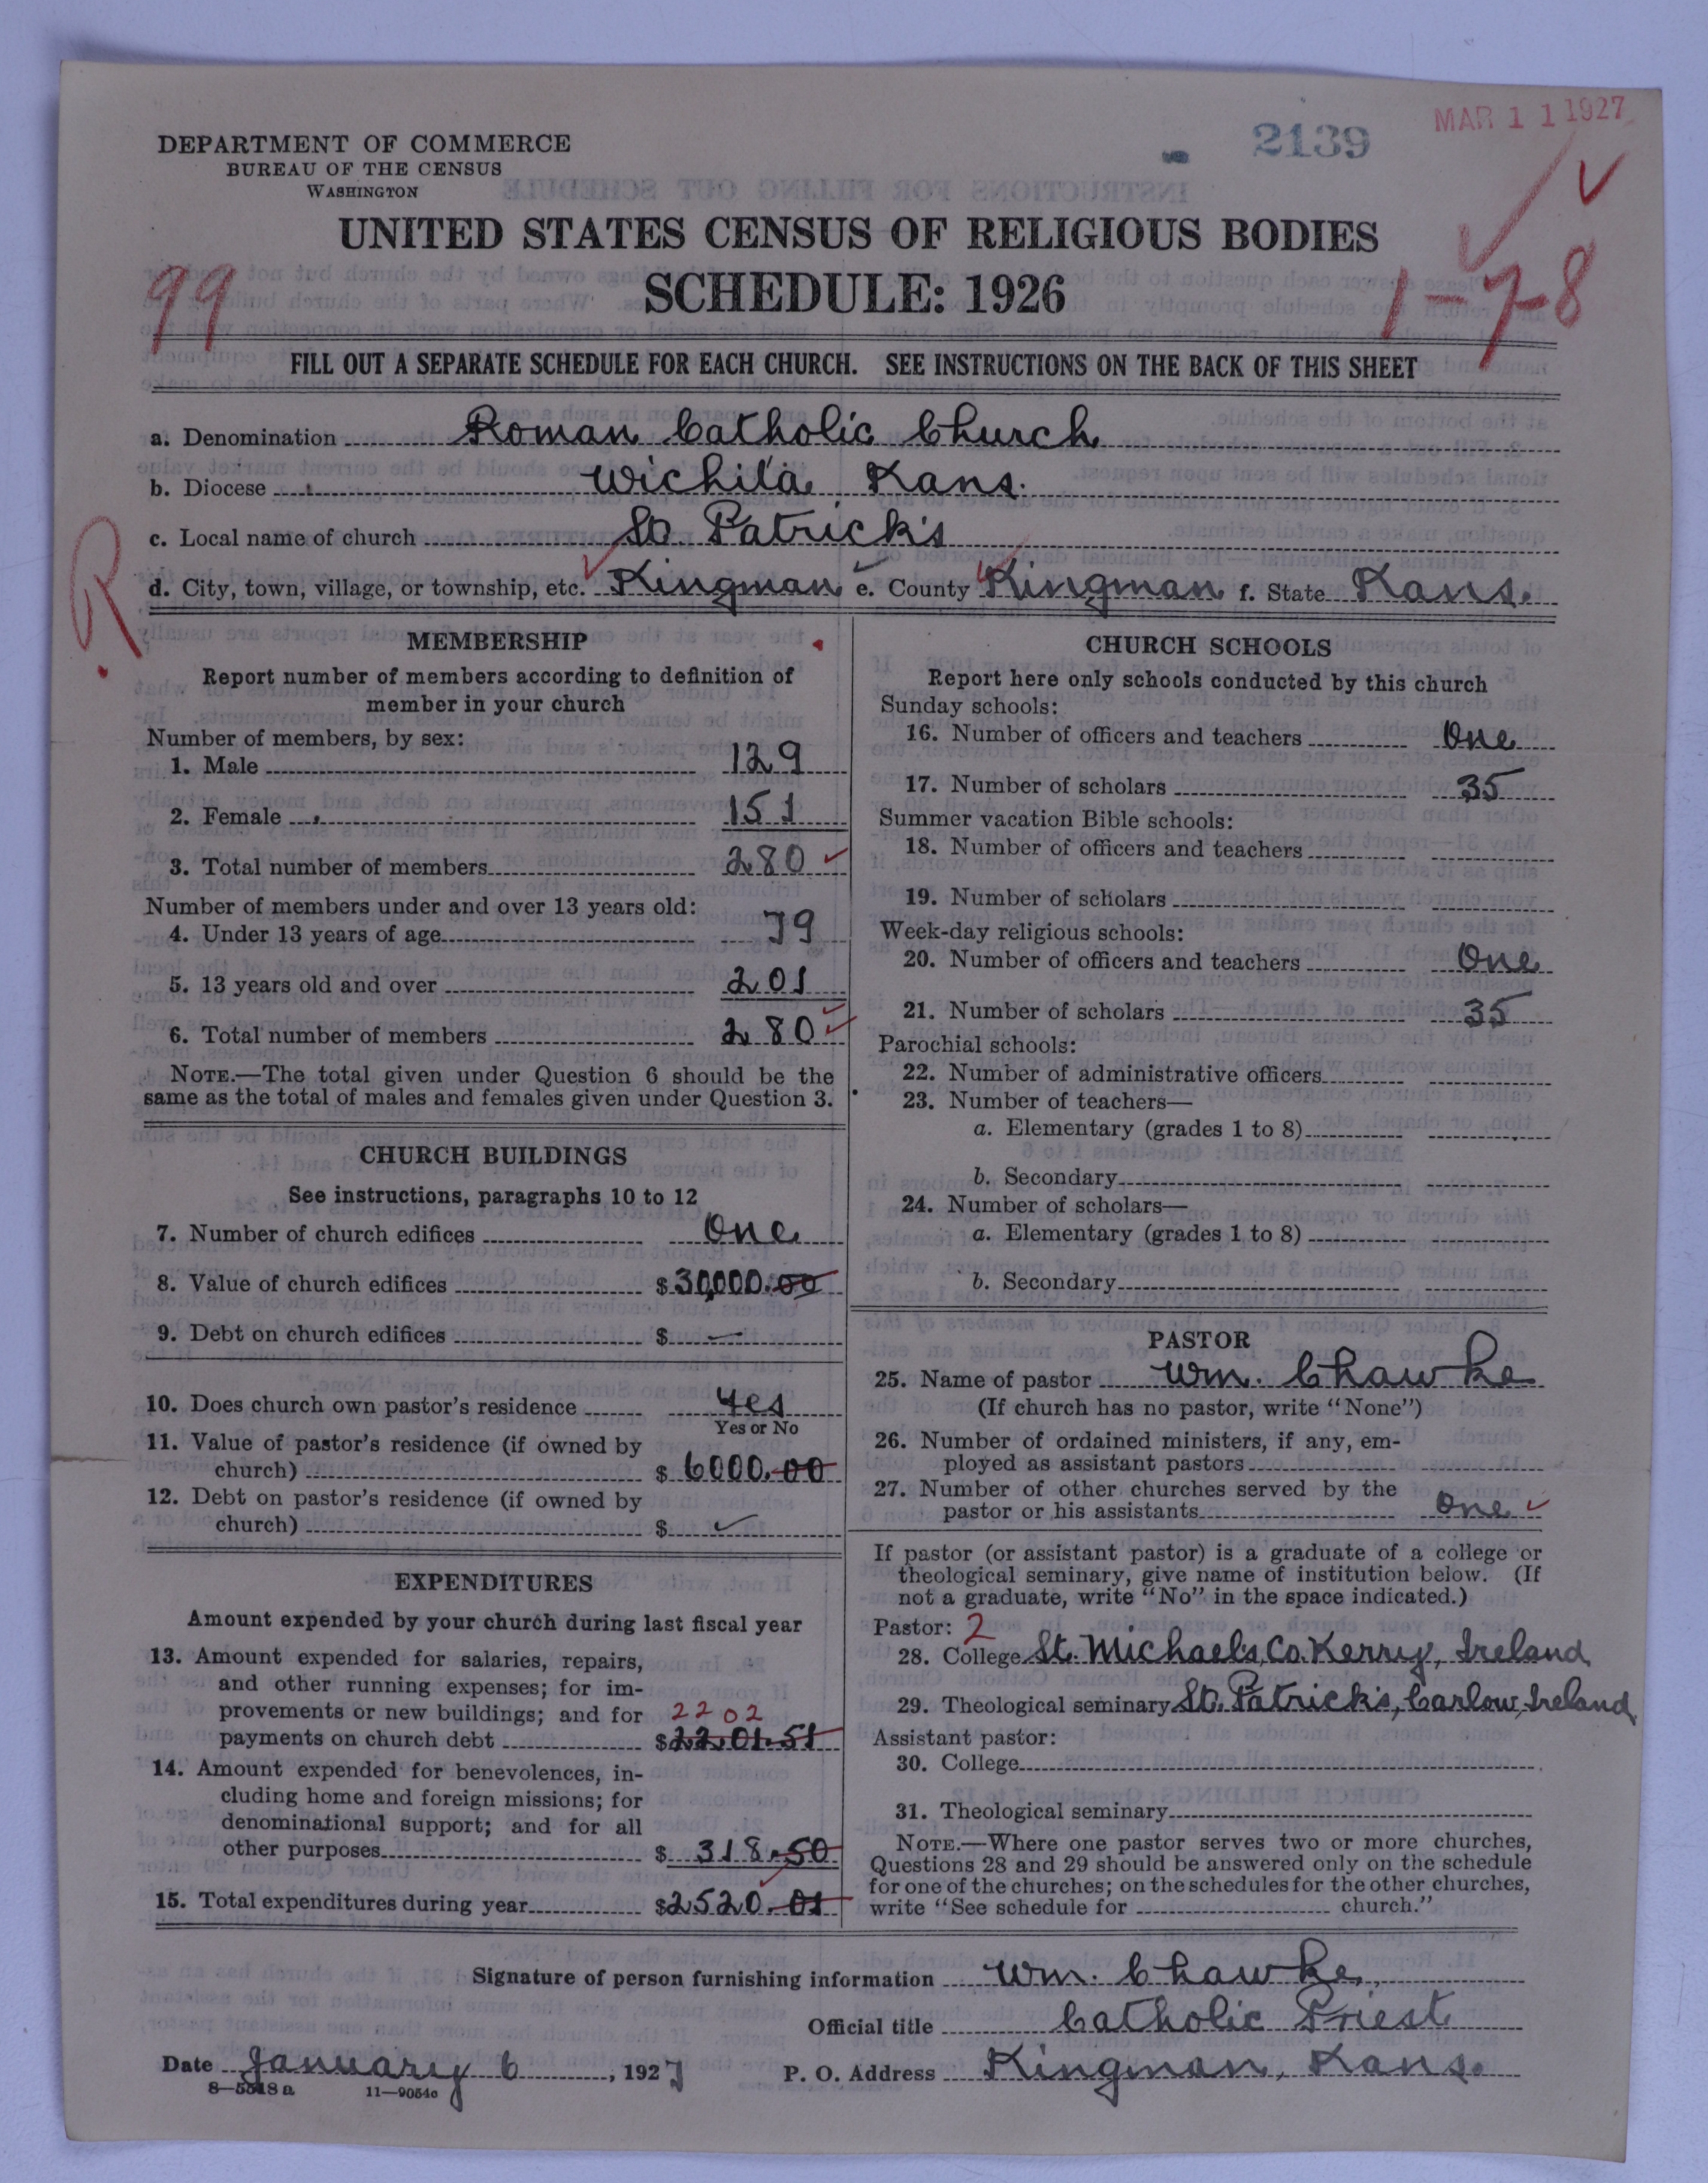 MAR 11 1927
2139
DEPARTMENT OF COMMERCE
BUREAU OF THE CENSUS
WASHINGTON
UNITED STATES CENSUS OF RELIGIOUS BODIES
SCHEDULE: 1926
99
1-7-8
FILL OUT A SEPARATE SCHEDULE FOR EACH CHURCH. SEE INSTRUCTIONS ON THE BACK OF THIS SHEET
a. Denomination Roman Catholic Church
b. Diocese Wichita, Kans.
c. Local name of church St. Patrick's
R
d. City, town, village, or township, etc. Kingman e. County Kingman f. State Kans.
MEMBERSHIP
Report number of members according to definition of
member in your church
Number of members, by sex:
1. Male 129
2. Female 151
3. Total number of members 280
Number of members under and over 13 years old:
4. Under 13 years of age 79
5. 13 years old and over 201
6. Total number of members 280
NOTE.—The total given under Question 6 should be the
same as the total of males and females given under Question 3.
CHURCH BUILDINGS
See instructions, paragraphs 10 to 12
7. Number of church edifices One
8. Value of church edifices $30,000.00
9. Debt on church edifices $ —
10. Does church own pastor's residence Yes
Yes or No
11. Value of pastor's residence (if owned by
church) $ 6000.00
12. Debt on pastor's residence (if owned by
church) $
EXPENDITURES
Amount expended by your church during last fiscal year
13. Amount expended for salaries, repairs,
and other running expenses; for im-
provements or new buildings; and for 2202
payments on church debt $2201.51
14. Amount expended for benevolences, in-
cluding home and foreign missions; for
denominational support; and for all
other purposes $ 318.50
15. Total expenditures during year $2520.01
CHURCH SCHOOLS
Report here only schools conducted by this church
Sunday schools:
16. Number of officers and teachers One
17. Number of scholars 35
Summer vacation Bible schools:
18. Number of officers and teachers
19. Number of scholars
Week-day religious schools:
20. Number of officers and teachers One
21. Number of scholars 35
Parochial schools:
22. Number of administrative officers
23. Number of teachers—
a. Elementary (grades 1 to 8)
b. Secondary
24. Number of scholars—
a. Elementary (grades 1 to 8)
b. Secondary
PASTOR
25. Name of pastor Wm. Chawke
(If church has no pastor, write "None")
26. Number of ordained ministers, if any, em-
ployed as assistant pastors
27. Number of other churches served by the
pastor or his assistants One
If pastor (or assistant pastor) is a graduate of a college or
theological seminary, give name of institution below. (If
not a graduate, write "No" in the space indicated.)
Pastor: 2
28. College St. Michael's, Co. Kerry, Ireland
29. Theological seminary St. Patrick's, Carlow, Ireland
Assistant pastor:
30. College
31. Theological seminary
NOTE.—Where one pastor serves two or more churches,
Questions 28 and 29 should be answered only on the schedule
for one of the churches; on the schedules for the other churches,
write "See schedule for church."
Signature of person furnishing information Wm. Chawke,
Official title Catholic Priest
Date January 6, 1927 P. O. Address Kingman, Kans.
8—5518 a 11—9054c